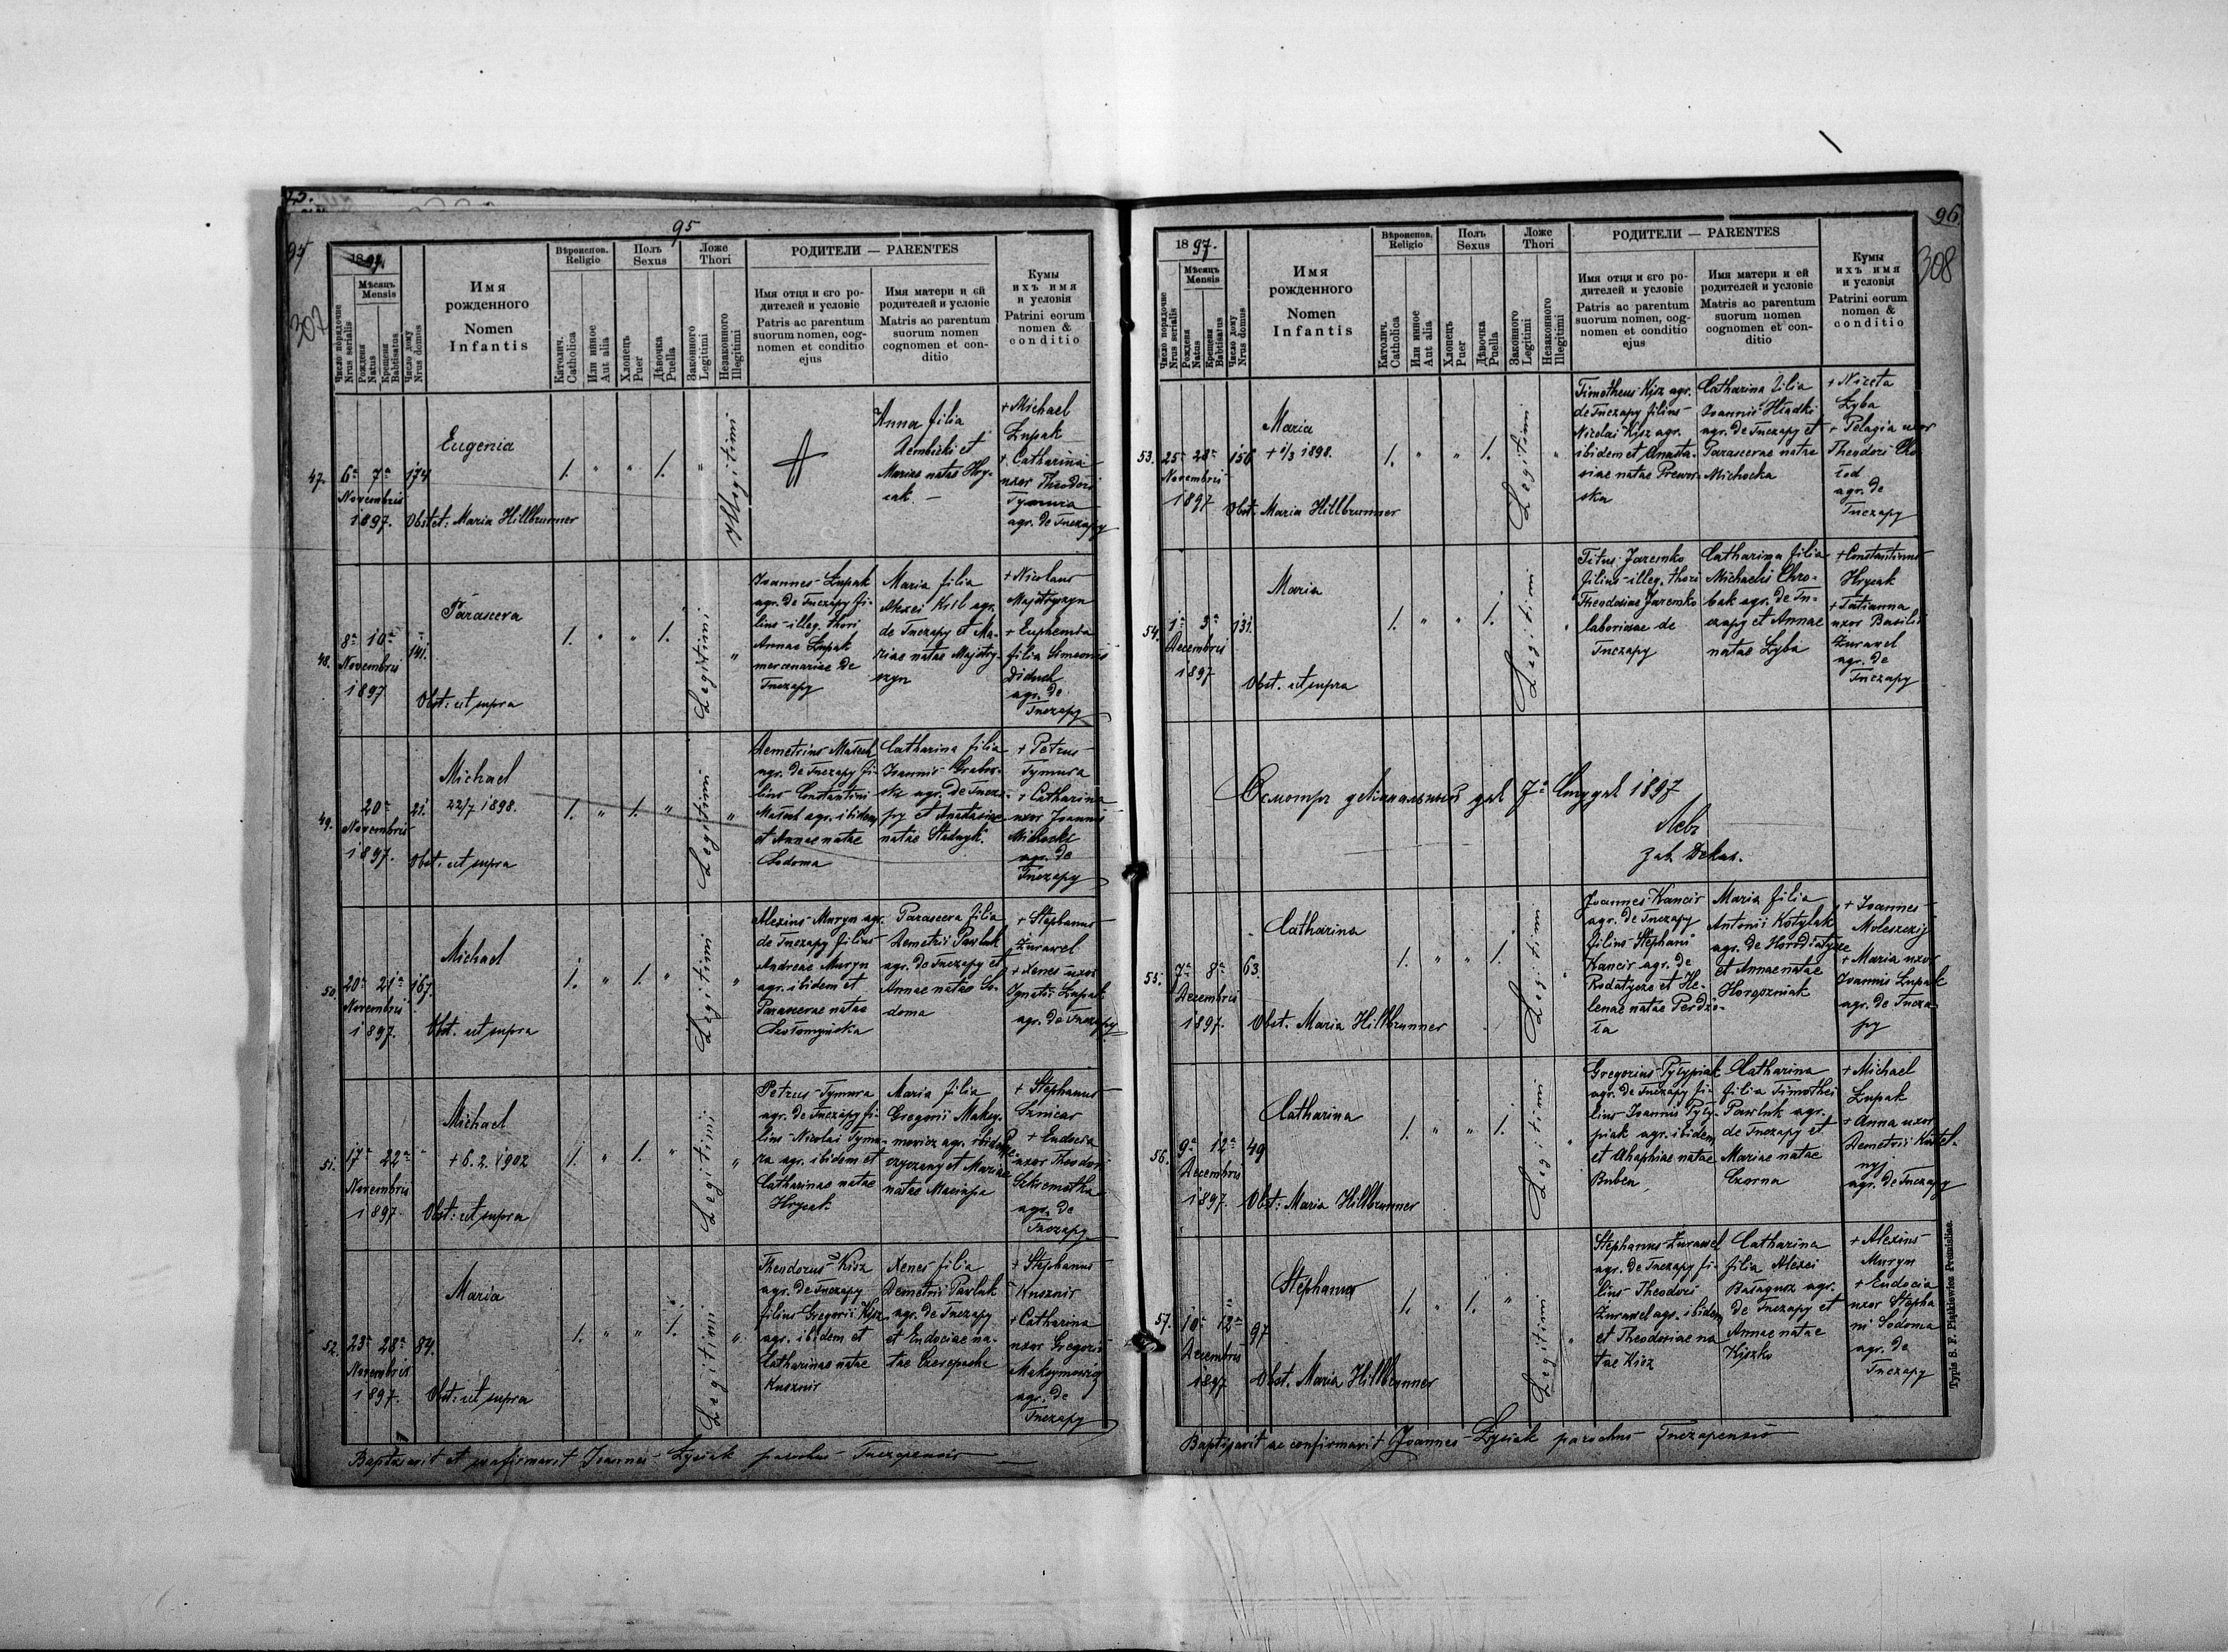 95
97
307
18 97.
Число порядочне
Nrus serialis
Мѣсяць
Mensis
Рожденя
Natus
Крещеня
Babtisatus
Число дому
Nrus domus
Имя
рожденного
Nomen
Infantis
Вѣроиспов.
Religio
Католич.
Catholica
Или инное
Aut alia
Полъ
Sexus
Хлопець
Puer
Дѣвочка
Puella
Ложе
Thori
Законного
Legitimi
Незаконного
Illegitimi
РОДИТЕЛИ — PARENTES
Имя отця и єго ро-
дителей и условіє
Patris ac parentum
suorum nomen, cog-
nomen et conditio
ejus
Имя матери и єй
родителей и условіє
Matris ac parentum
suorum nomen
cognomen et con-
ditio
Кумы
ихъ имя
и условія
Patrini eorum
nomen &
conditio
47. 6a 7a 174
Novembris
1897.
Eugenia
Obstet: Maria Hillbrunner
1. " " 1. "
Illegitimi
Anna filia
Dembicki et
Mariae natae Hry-
cak —
+ Michael
Łupak
+ Catharina
uxor Theodori
Tymura
agr. de Tuczapy
48. 8a 10a 141.
Novembris
1897
Parasceva
Obst: ut supra
1. " " 1.
Legitimi
"
Ioannes Łupak
agr. de Tuczapy fi-
lius illeg. thori
Annae Łupak
mercenariae de
Tuczapy
Maria filia
Alexei Kril agr.
de Tuczapy et Ma-
riae natae Majstry-
szyn
+ Nicolaus
Majstryszyn
+ Euphemia
filia Simeonis
Diduch
agr. de
Tuczapy
49. 20a 21.
Novembris
1897.
Michael
22/7 1898.
Obst: ut supra
1. " 1. "
Legitimi
"
Demetrius Małech
agr. de Tuczapy fi-
lius Constantini
Małech agr. ibidem
et Annae natae
Sodoma
Catharina filia
Ioannis Grabow-
ski agr. de Tucza-
py et Anastasiae
natae Stadnyk
+ Petrus
Tymura
+ Catharina
uxor Joannis
Michocki
agr. de
Tuczapy
50. 20a 21a 167
Novembris
1897.
Michael
Obst. ut supra
1. " 1. "
Legitimi
"
Alexius Muryn agr.
de Tuczapy filius
Andreae Muryn
agr. ibidem et
Parascevae natae
Parasceva filia
Demetrii Pawluk
agr. de Tuczapy et
Annae natae So-
doma
+ Stephanus
Żurawel
+ Xenes uxor
Ignatii Łupak
agr. de Tuczapy
51. 17a 22a "
Novembris
1897.
Michael
+ 6. 2. 1902
Obst: ut supra
1. " 1. "
Legitimi
"
Petrus Tymura
agr. de Tuczapy fi-
lius Nicolai Tymu-
ra agr. ibidem et
Catharinae natae
Hrycak
Maria filia
Gregorii Maksy-
mowicz agr. ibidem
et Mariae
natae
+ Stephanus
+ Eudocia
uxor Theodori
agr. de
Tuczapy
52. 23a 28a 84.
Novembris
1897.
Maria
Obst: ut supra
1. " " 1.
Legitimi
"
Theodorus Kisz
agr. de Tuczapy
filius Gregorii Kisz
agr. ibidem et
Catharinae natae
Kusznir
Xenes filia
Demetrii Pawluk
agr. de Tuczapy
et Eudociae na-
tae Czerepacha
+ Stephanus
Kusznir
+ Catharina
uxor Gregorii
Maksymowicz
agr. de
Tuczapy
Baptisavit et confirmavit Joannes Łysiak parochus Tuczapensis
96.
308
18 97.
Число порядочне
Nrus serialis
Мѣсяць
Mensis
Рожденя
Natus
Крещеня
Babtisatus
Число дому
Nrus domus
Имя
рожденного
Nomen
Infantis
Вѣроиспов.
Religio
Католич.
Catholica
Или инное
Aut alia
Полъ
Sexus
Хлопець
Puer
Дѣвочка
Puella
Ложе
Thori
Законного
Legitimi
Незаконного
Illegitimi
РОДИТЕЛИ — PARENTES
Имя отця и єго ро-
дителей и условіє
Patris ac parentum
suorum nomen, cog-
nomen et conditio
ejus
Имя матери и ей
родителей и условіє
Matris ac parentum
suorum nomen
cognomen et con-
ditio
Кумы
ихъ имя
и условія
Patrini eorum
nomen &
conditio
53. 25a 28a 156
Novembris
1897
Maria
+ 1/3 1898.
Obst. Maria Hillbrunner
1. " " 1.
Legitimi
"
Timotheus Kisz agr.
de Tuczapy filius
Nicolai Kisz agr.
ibidem et Anasta-
siae natae Prewor-
ska
Catharina filia
Ioannis Hladki
agr. de Tuczapy et
Parascevae natae
Michocka
+ Niceta
Zyba
+ Pelagia uxor
Theodori Cho
łod
agr. de
Tuczapy
54. 1a 3a 131.
Decembris
1897
Maria
Obst. ut supra
1. " " 1.
Legitimi
"
Titus Jaremko
filius illeg. thori
Theodosiae Jaremko
laboriosae de
Tuczapy
Catharina filia
Michaelis Chro-
bak agr. de Tu-
czapy et Annae
natae Zyba
+ Constantinus
Hrycak
+ Tatianna
uxor Basilii
Żurawel
agr. de
Tuczapy
7a 1897
Декан.
55. 7a 8a 63.
Decembris
1897.
Catharina
Obst. Maria Hillbrunner
1. " " 1.
Legitimi
"
Joannes Kancir
agr. de Tuczapy
filius Stephani
Kancir agr. de
Rodatycze et He-
lenae natae Perdzi-
ła
Maria filia
Antonii Kotylak
agr. de Horodiatycze
et Annae natae
+ Ioannes
Moleszczij
+ Maria uxor
Ioannis Łupak
agr. de Tucza-
py
56. 9a 12a 49
Decembris
1897.
Catharina
Obst: Maria Hillbrunner
1. " " 1.
Legitimi
"
Gregorius Pyłypiak
agr. de Tuczapy fi-
lius Ioannis Pyły-
piak agr. ibidem
et Ahaphiae natae
Buben
Catharina
filia Timothei
Pawluk agr.
de Tuczapy et
Mariae natae
Czorna
+ Michael
Łupak
+ Anna uxor
Demetrii Kostel-
nyj
agr. de Tuczapy
57. 10a 12a 97
Decembris
1897
Stephanus
Obst. Maria Hillbrunner
1. " 1. "
Legitimi
"
Stephanus Żurawel
agr. de Tuczapy fi-
lius Theodori
Żurawel agr. ibidem
et Theodosiae na
tae Kisz
Catharina
filia Alexei
Bałagusz agr.
de Tuczapy et
Annae natae
Kiszko
+ Alexius
Muryn
+ Eudocia
uxor Stepha
ni Sodoma
agr. de
Tuczapy
Baptisavit ac confirmavit Joannes Łysiak parochus Tuczapensis
Typis S. F. Piątkiewicz Premisliae.